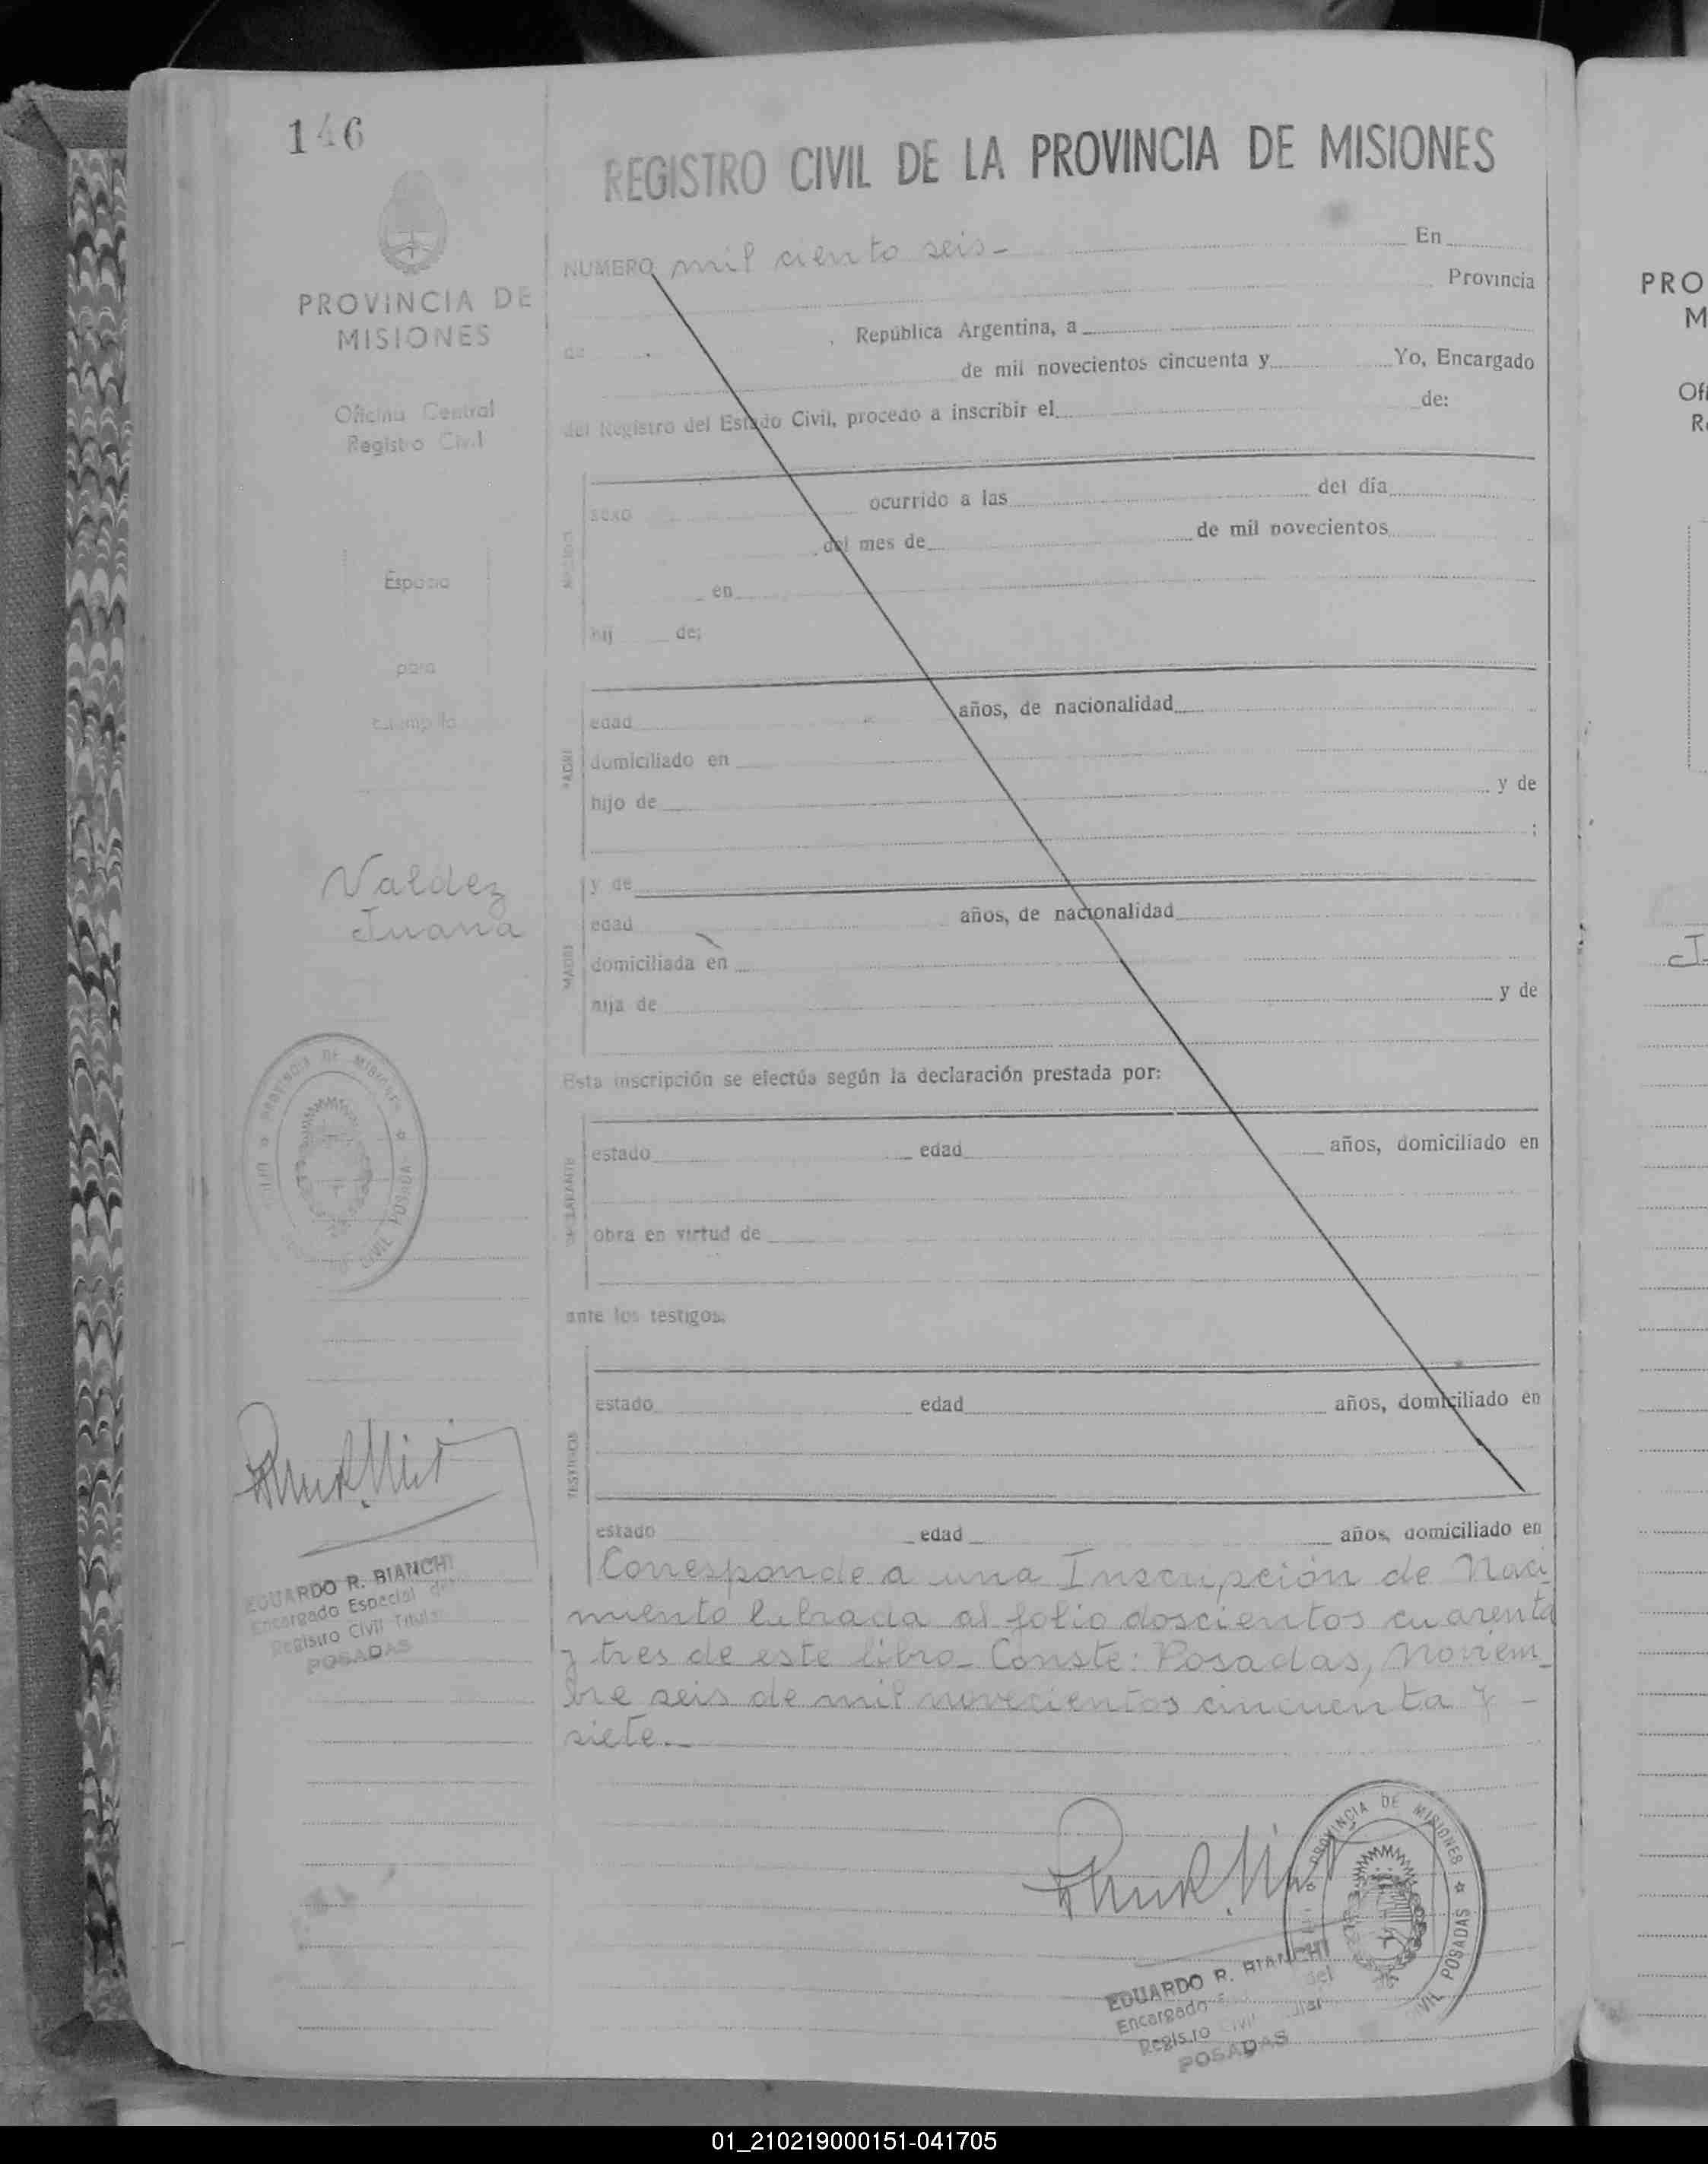 146
REGISTRO CIVIL DE LA PROVINCIA DE MISIONES
NUMERO mil ciento seis- En
Provincia
de República Argentina, a
de mil novecientos cincuenta y Yo, Encargado
del Registro del Estado Civil, procedo a inscribir el de:
sexo ocurrido a las del día
del mes de de mil novecientos
en
hij de:
edad años, de nacionalidad
PADRE
domiciliado en
hijo de y de
;
y de
edad años, de nacionalidad
MADRE
domiciliada en
hija de y de
Esta inscripción se efectúa según la declaración prestada por:
estado edad años, domiciliado en
DECLARANTE
obra en virtud de
ante los testigos:
estado edad años, domiciliado en
TESTIGOS
estado edad años, domiciliado en
Corresponde a una Inscripción de Naci
miento labrada al folio doscientos cuarenta
y tres de este libro_ Conste: Posadas, Noviem_
bre seis de mil novecientos cincuenta y -
siete._
PROVINCIA DE MISIONES
POSADAS
EDUARDO R. BIANCHI
Encargado del
Registro Civil
POSADAS
PROVINCIA DE
MISIONES
Oficina Central
Registro Civil
Espacio
para
estampilla
Valdez
Juana
PROVINCIA DE MISIONES
CIVIL POSADAS
EDUARDO R. BIANCHI
Encargado Especial del
Registro Civil Titular
POSADAS
PRO
M
Ofi
R
J
01_210219000151-041705